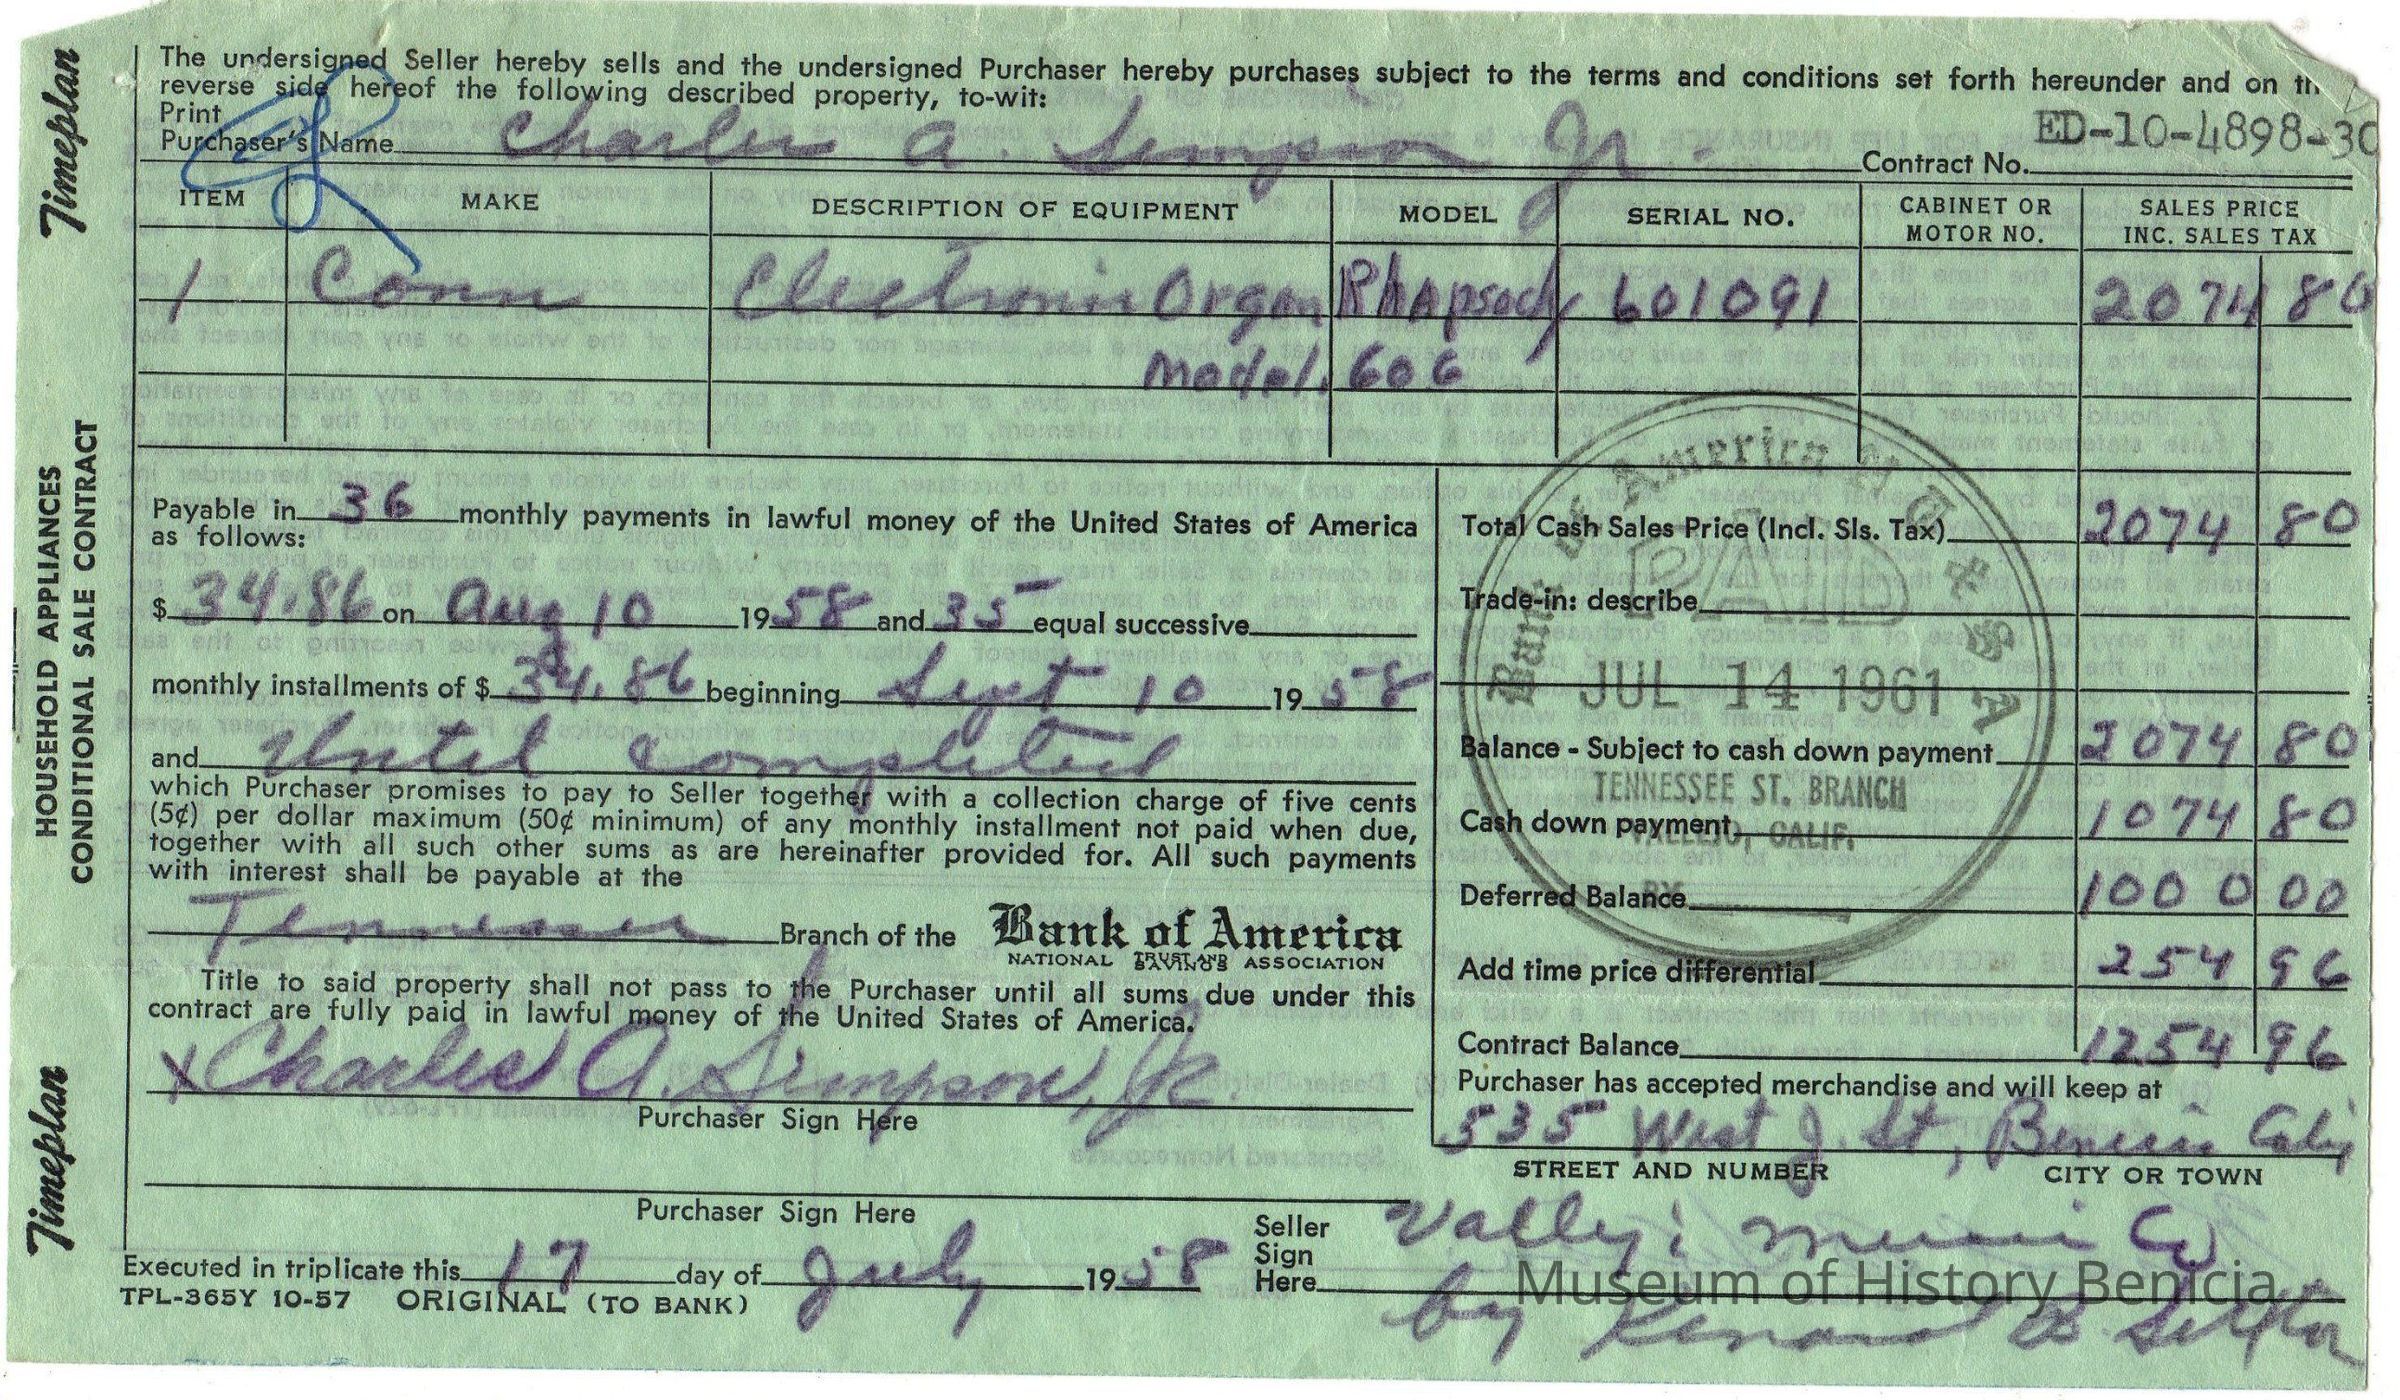 Timeplan
HOUSEHOLD APPLIANCES
CONDITIONAL SALE CONTRACT
Timeplan
The undersigned Seller hereby sells and the undersigned Purchaser hereby purchases subject to the terms and conditions set forth hereunder and on th
reverse side hereof the following described property, to-wit:
Print
Purchaser's Name Charles A. Simpson Jr. Contract No. ED-10-4898-30
ITEM MAKE DESCRIPTION OF EQUIPMENT MODEL SERIAL NO. CABINET OR MOTOR NO. SALES PRICE INC. SALES TAX
1 Conn Electronic Organ Rhapsody 601091 2074 80
Model. 606
Payable in 36 monthly payments in lawful money of the United States of America
as follows:
$ 34.86 on Aug 10 1958 and 35 equal successive
monthly installments of $ 34.86 beginning Sept 10 1958
and Until Completed
which Purchaser promises to pay to Seller together with a collection charge of five cents
(5¢) per dollar maximum (50¢ minimum) of any monthly installment not paid when due,
together with all such other sums as are hereinafter provided for. All such payments
with interest shall be payable at the
Tennessee Branch of the Bank of America
NATIONAL TRUST AND SAVINGS ASSOCIATION
Title to said property shall not pass to the Purchaser until all sums due under this
contract are fully paid in lawful money of the United States of America.
X Charles A. Simpson, Jr.
Purchaser Sign Here
Purchaser Sign Here
Executed in triplicate this 17 day of July 1958
TPL-365Y 10-57 ORIGINAL (TO BANK)
Total Cash Sales Price (Incl. Sls. Tax) 2074 80
Trade-in: describe
Balance - Subject to cash down payment 2074 80
Cash down payment 1074 80
Deferred Balance 1000 00
Add time price differential 254 96
Contract Balance 1254 96
Purchaser has accepted merchandise and will keep at
535 West J. St, Benicia Calif
STREET AND NUMBER CITY OR TOWN
Seller
Sign
Here Valley Music Co
by
Bank of America N T & S A
PAID
JUL 14 1961
TENNESSEE ST. BRANCH
VALLEJO, CALIF.
BY
Museum of History Benicia